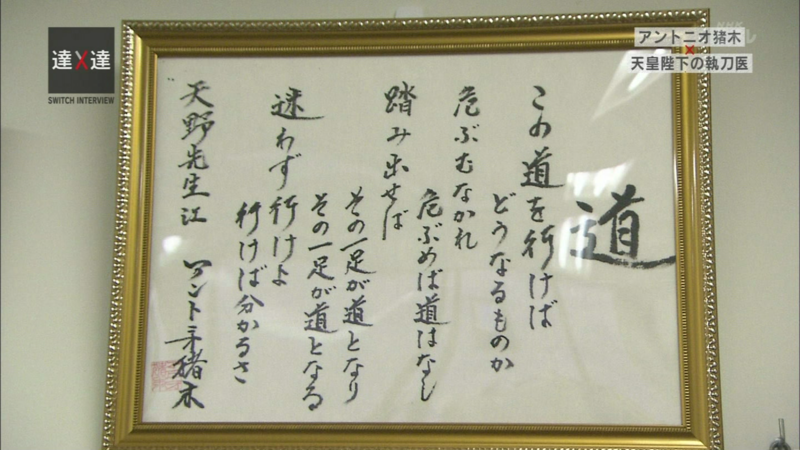 達×達
SWITCH INTERVIEW
アントニオ猪木
×
天皇陛下の執刀医
道
この道を行けば
どうなるものか
危ぶむなかれ
危ぶめば道はなし
踏み出せば
その一足が道となり
その一足が道となる
迷わず行けよ
行けば分かるさ
天野先生江
アントニオ猪木